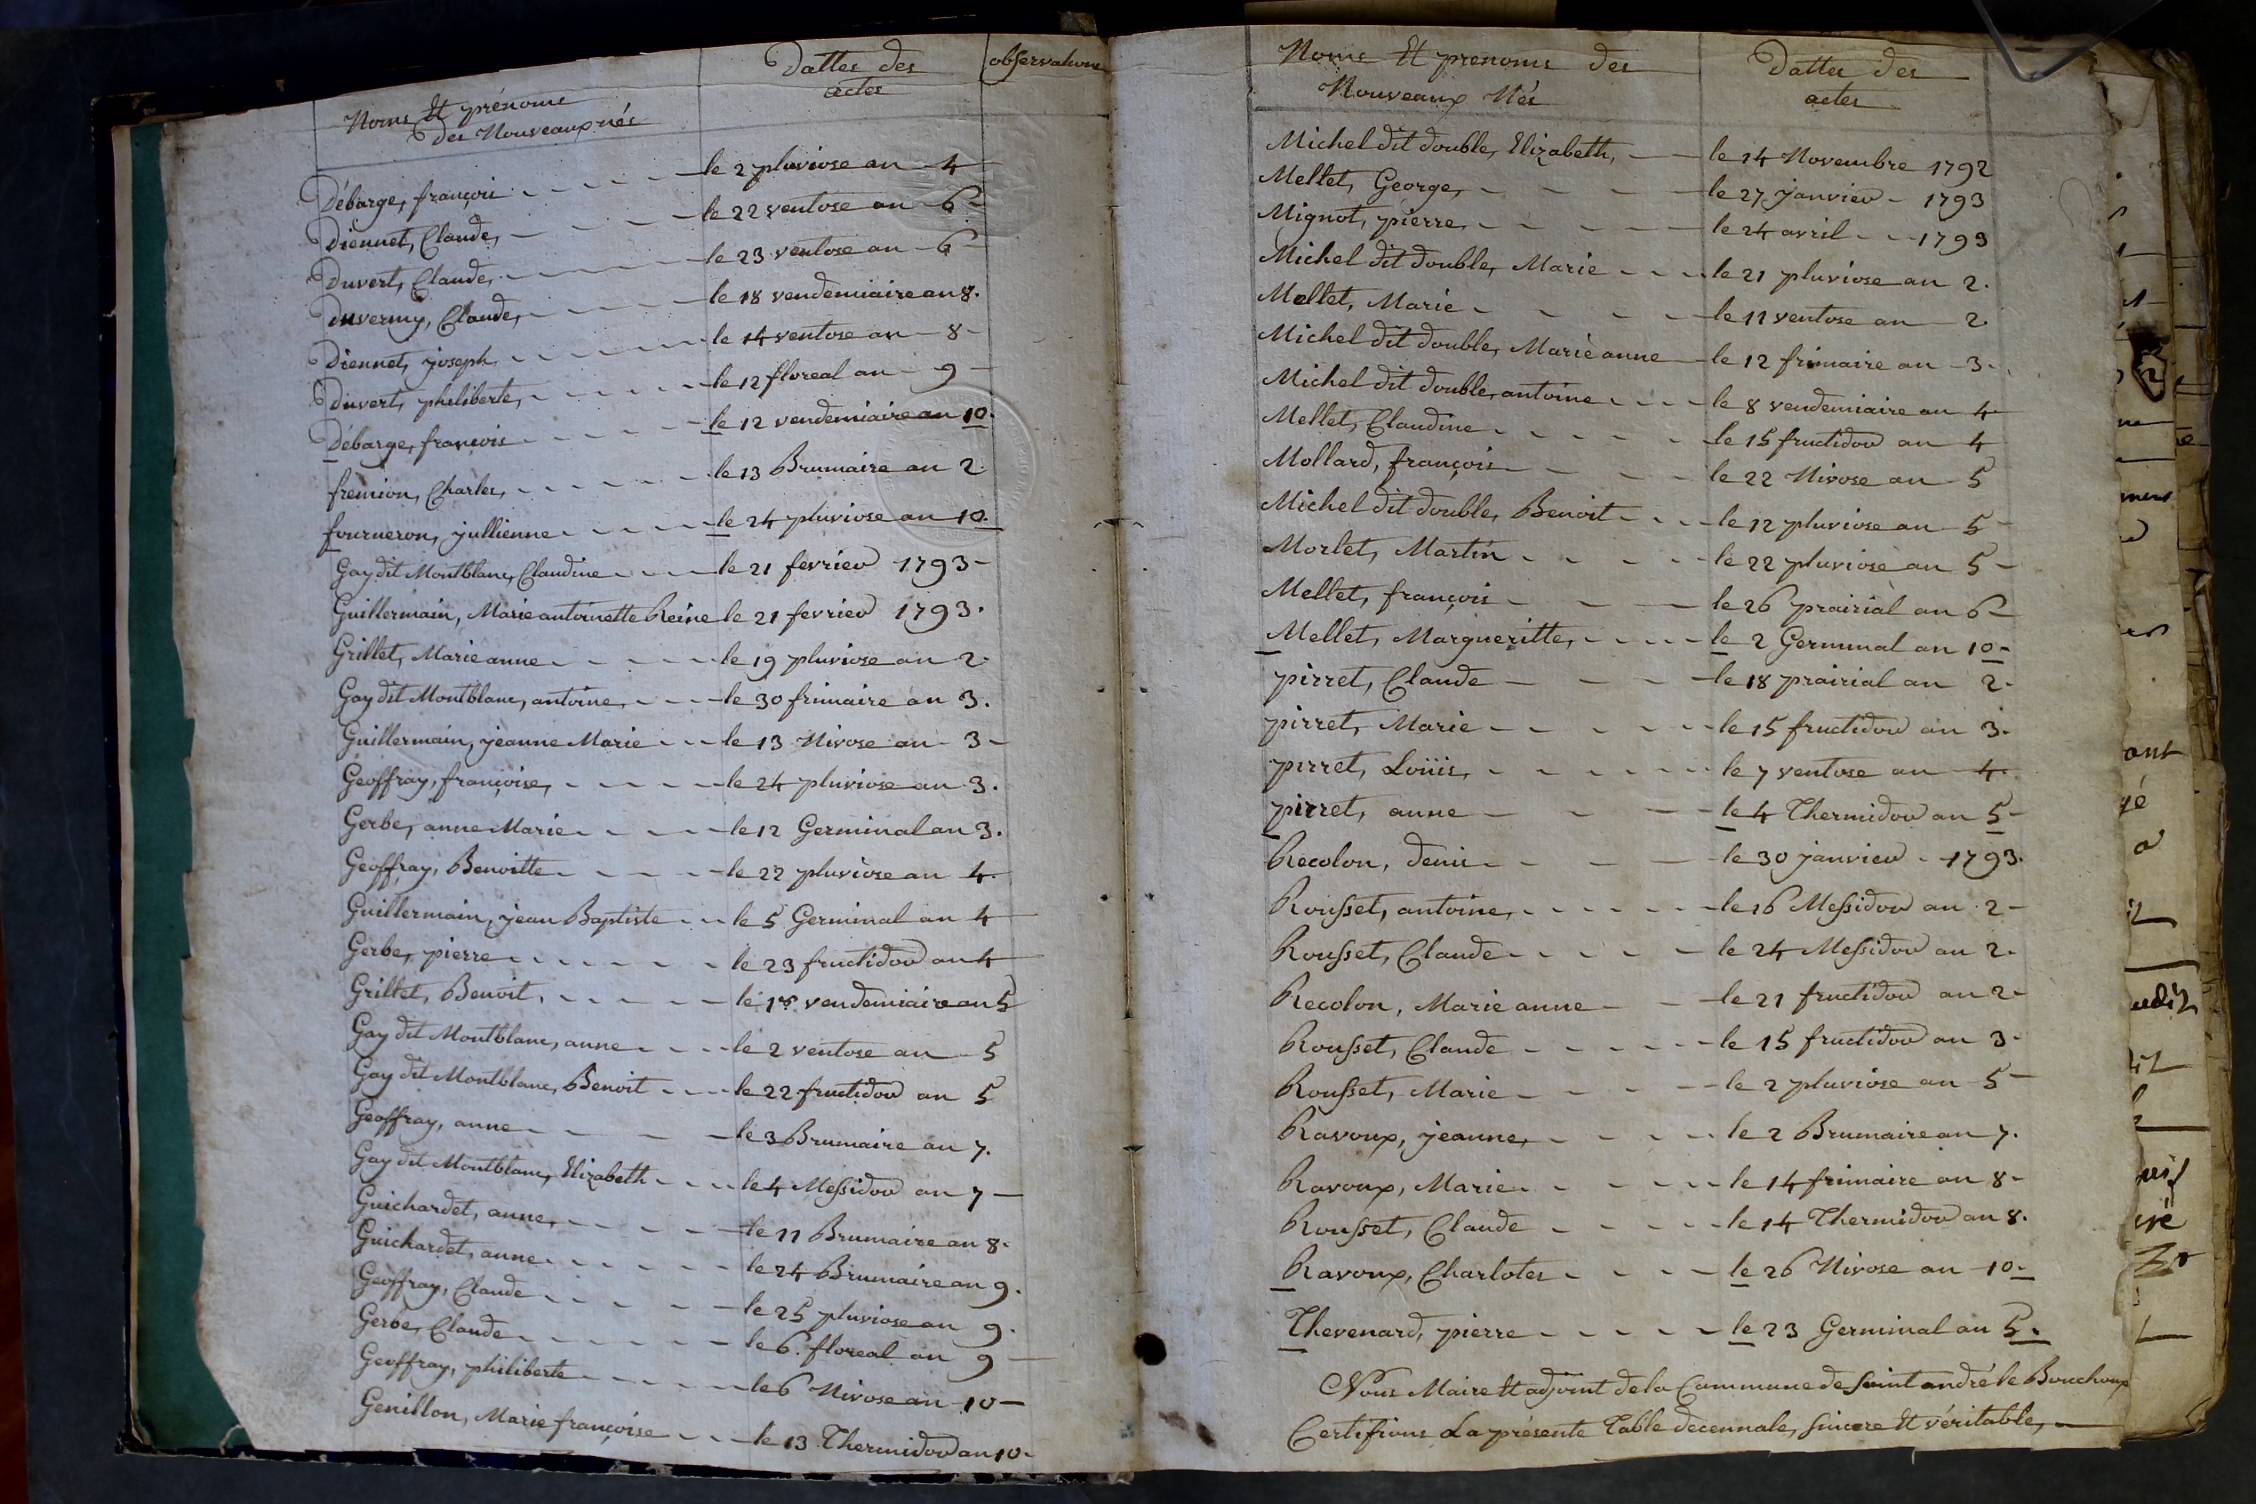 Noms Et prénoms
des Nouveaux nés
Dattes des
actes
observations
Débarge, françois le 2 pluviose an 4
Diennet, Claude, le 22 ventose an 6
Duvert, Claude, le 23 ventose an 6
Duverny, Claude, le 18 vendemiaire an 8.
Diennet, joseph le 14 ventose an 8
Duvert, philiberte, le 12 floreal an 9
Débarge, francois le 12 vendemiaire an 10.
fremion, Charles, le 13 Brumaire an 2.
fourneron, jullienne le 24 pluviose an 10.
Gay dit Montblanc, Claudine le 21 fevrier 1793
Guillermain, Marie antoinette Reine le 21 fevrier 1793.
Grillet, Marie anne le 19 pluviose an 2.
Gay dit Montblanc, antoine le 30 frimaire an 3.
Guillermain, jeanne Marie le 13 Nivose an 3
Geoffray, françoise, le 24 pluviose an 3.
Gerbe, anne Marie le 12 Germinal an 3.
Geoffray, Benoitte le 22 pluviose an 4.
Guillermain, jean Baptiste le 5 Germinal an 4
Gerbe, pierre le 23 fructidor an 4
Grillet, Benoit, le 1er vendemiaire an 5
Gay dit Montblanc, anne le 2 ventose an 5
Gay dit Montblanc, Benoit le 22 fructidor an 5
Geoffray, anne le 3 Brumaire an 7.
Gay dit Montblanc, Elizabeth le 4 Messidor an 7
Guichardet, anne, le 11 Brumaire an 8.
Guichardet, anne le 24 Brumaire an 9.
Geoffray, Claude le 25 pluviose an 9.
Gerbe, Claude le 6. floreal an 9
Geoffray, philiberte le 6 Nivose an 10
Genillon, Marie françoise le 13 Thermidor an 10.
Noms Et prenoms des
Nouveaux Nés
Dattes des
actes
Michel dit double, Elizabeth, le 14 Novembre 1792
Mellet, George, le 27 janvier 1793
Mignot, pierre le 24 avril 1793
Michel dit double, Marie le 21 pluviose an 2.
Mellet, Marie le 11 ventose an 2.
Michel dit double, Marie anne le 12 frimaire an 3.
Michel dit double, antoine le 8 vendemiaire an 4
Mellet, Claudine le 15 fructidor an 4
Mollard, françois le 22 Nivose an 5
Michel dit double, Benoit le 12 pluviose an 5
Morlet, Martin le 22 pluviose an 5
Mellet, françois le 26 prairial an 6
Mellet, Margueritte, le 2 Germinal an 10
pirret, Claude le 18 prairial an 2.
pirret, Marie le 15 fructidor an 3.
pirret, Loüis, le 7 ventose an 4.
pirret, anne le 4 Thermidor an 5
Recolon, denis le 30 janvier 1793.
Rousset, antoine, le 16 Messidor an 2
Rousset, Claude le 24 Messidor an 2.
Recolon, Marie anne le 21 fructidor an 2
Rousset, Claude le 15 fructidor an 3.
Rousset, Marie le 2 pluviose an 5
Ravoux, jeanne, le 2 Brumaire an 7.
Ravoux, Marie le 14 frimaire an 8
Rousset, Claude le 14 Thermidor an 8.
Ravoux, Charlotes le 26 Nivose an 10.
Thevenard, pierre le 23 Germinal an 5.
Nous Maire Et adjoint de la Commune de saint andré le Bouchoux
Certifions La présente Table decennale, sincere Et véritable,